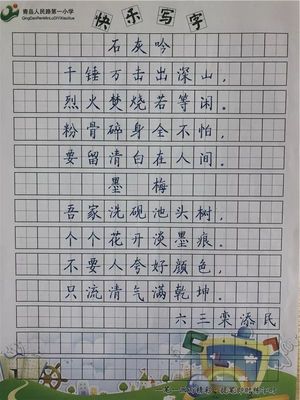 青岛人民路第一小学
快乐写字
石灰吟
千锤万击出深山，
烈火焚烧若等闲。
粉骨碎身全不怕，
要留清白在人间。
墨梅
吾家洗砚池头树，
个个花开淡墨痕。
不要人夸好颜色，
只流清气满乾坤。
六三栾添民